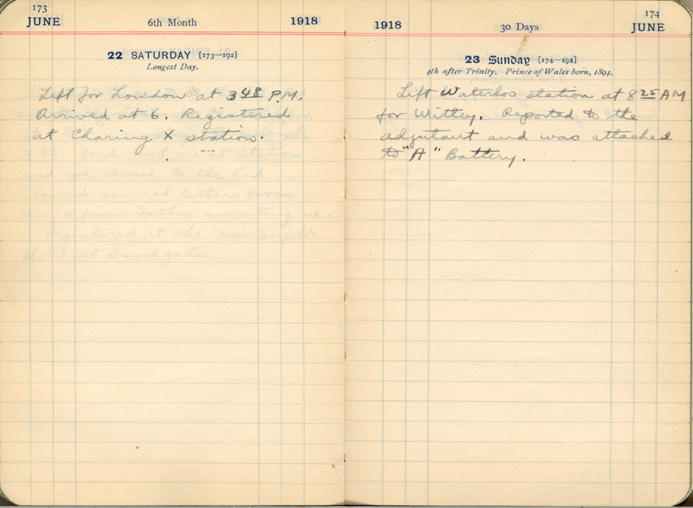 173
JUNE 6th Month 1918
22 SATURDAY [173—192]
Longest Day.
Left for London at 3 48 P.M.
Arrived at 6. Registered
at Charing X station.
1918 30 Days 174
JUNE
23 Sunday [174—192]
4th after Trinity. Prince of Wales born, 1894.
Left Waterloo station at 8 25 AM
for Witley. Reported to the
adjutant and was attached
to "A" Battery.